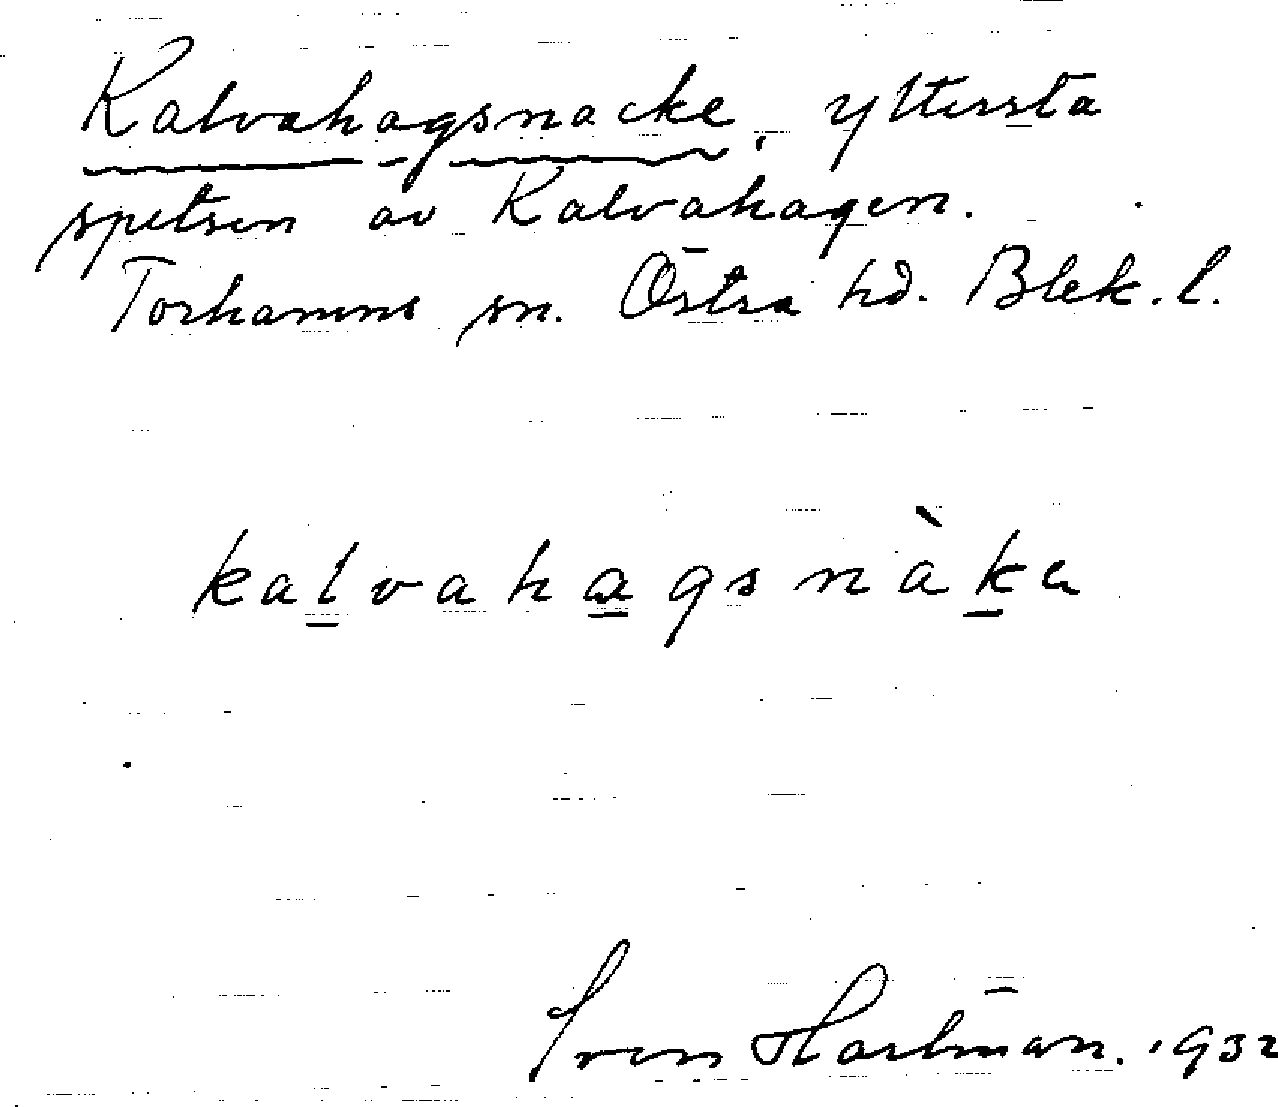 Kalvahagsnacke, yttersta
spetsen av Kalvahagen.
Torhamns sn. Östra hd. Blek. l.
kalvahagsnàka
Sven Hartman. 1932